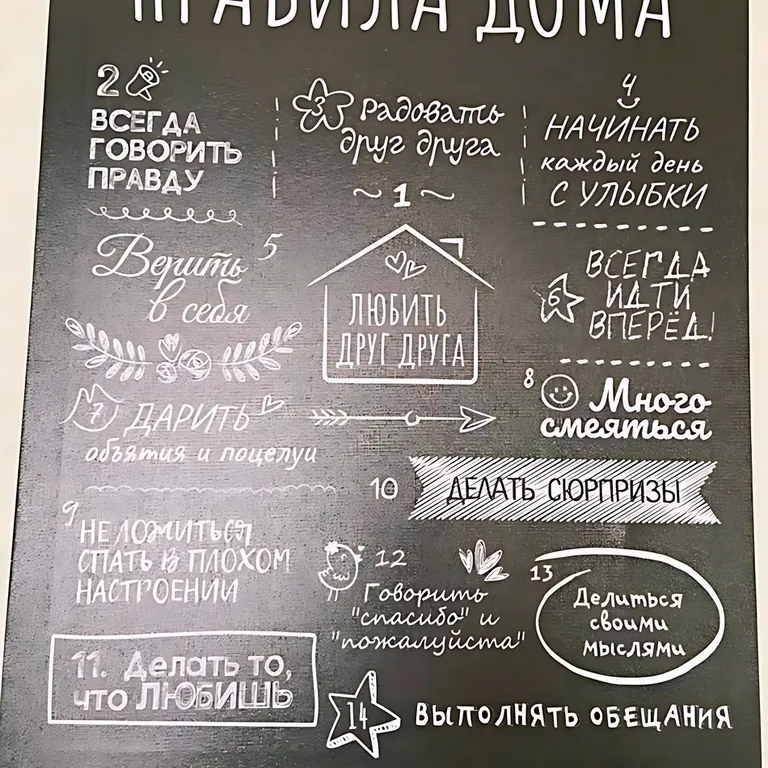 ПРАВИЛА ДОМА
2
ВСЕГДА
ГОВОРИТЬ
ПРАВДУ
3 Радовать
друг друга
4
НАЧИНАТЬ
каждый день
С УЛЫБКИ
~ 1 ~
ЛЮБИТЬ
ДРУГ ДРУГА
5
Верить
в себя
6
ВСЕГДА
ИДТИ
ВПЕРЁД!
7 ДАРИТЬ
объятия и поцелуи
8
Много
смеяться
9
НЕ ЛОЖИТЬСЯ
СПАТЬ В ПЛОХОМ
НАСТРОЕНИИ
10 ДЕЛАТЬ СЮРПРИЗЫ
11. Делать то,
что ЛЮБИШЬ
12
Говорить
"спасибо" и
"пожалуйста"
13
Делиться
своими
мыслями
14 ВЫПОЛНЯТЬ ОБЕЩАНИЯ